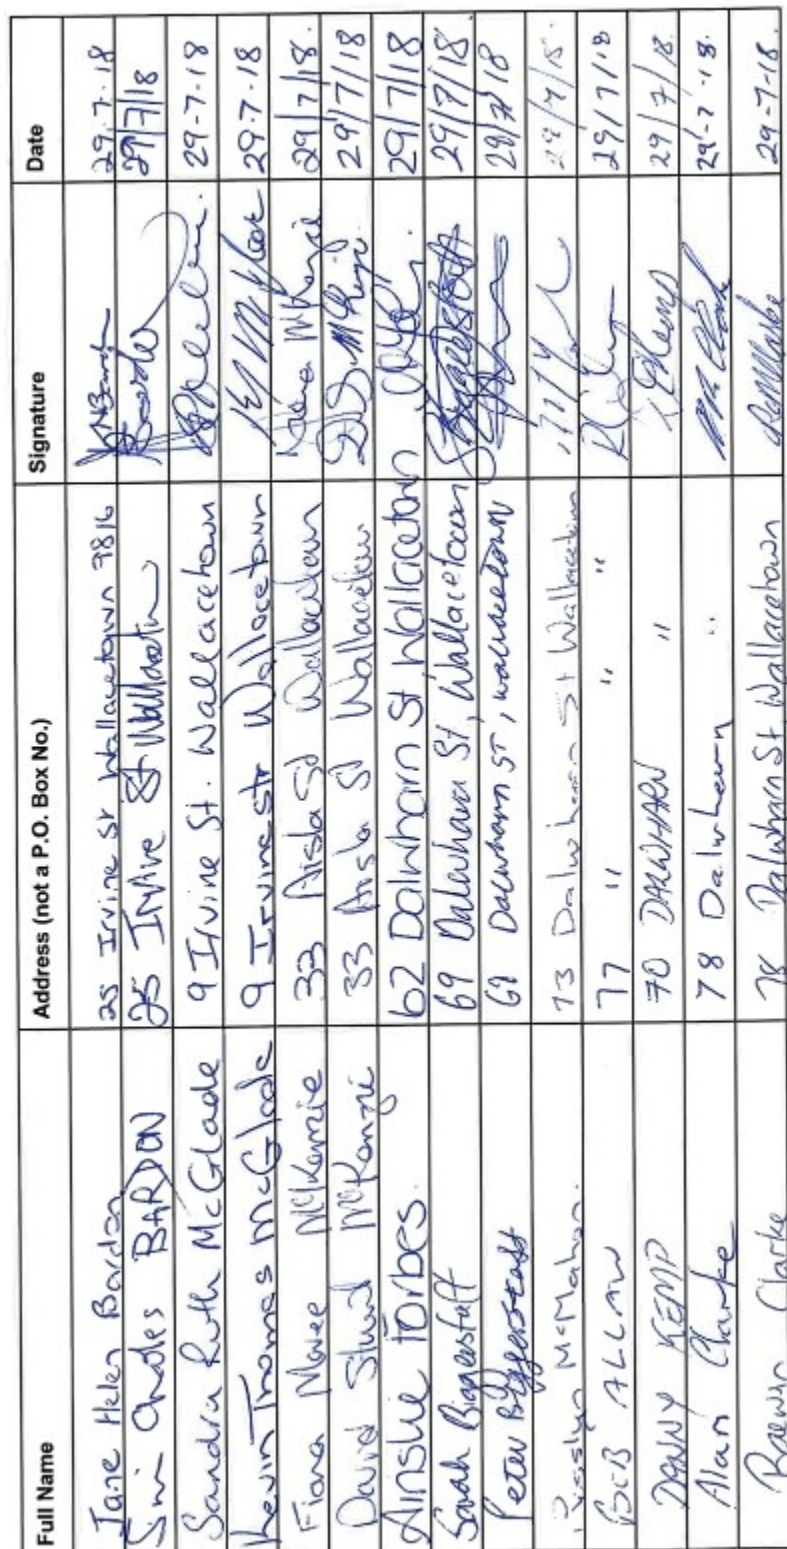 Full Name Address (not a P.O. Box No.) Signature Date
Jane Helen Bardon 25 Irvine St Wallacetown 9816 29.7.18
Charles BARDON 25 Irvine St Wallacetown 29/7/18
Sandra Ruth McGlade 9 Irvine St. Wallacetown 29-7-18
Kevin Thomas McGlade 9 Irvine str Wallacetown 29.7.18
Fiona Maree McKenzie 33 Aisla St Wallacetown 29/7/18.
David Stuart McKenzie 33 Aisla St Wallacetown 29/7/18
Ainslie Forbes. 62 Dalwharn St Wallacetown 29/7/18
Sarah Biggerstaff 69 Dalwharn St, Wallacetown 29/7/18.
Peter Biggerstaff 69 Dalwharn ST, Wallacetown 29/7/18
Rosslyn McMahon. 73 Dalwharn St Wallacetown 29/7/18.
BOB ALLAN 77 " " " 29/7/18
DANNY KEMP 70 DALWHARN " 29/7/18.
Alan Clarke 78 Dalwharn " 29-7-18.
Raewyn Clarke 78 Dalwharn St Wallacetown 29-7-18.